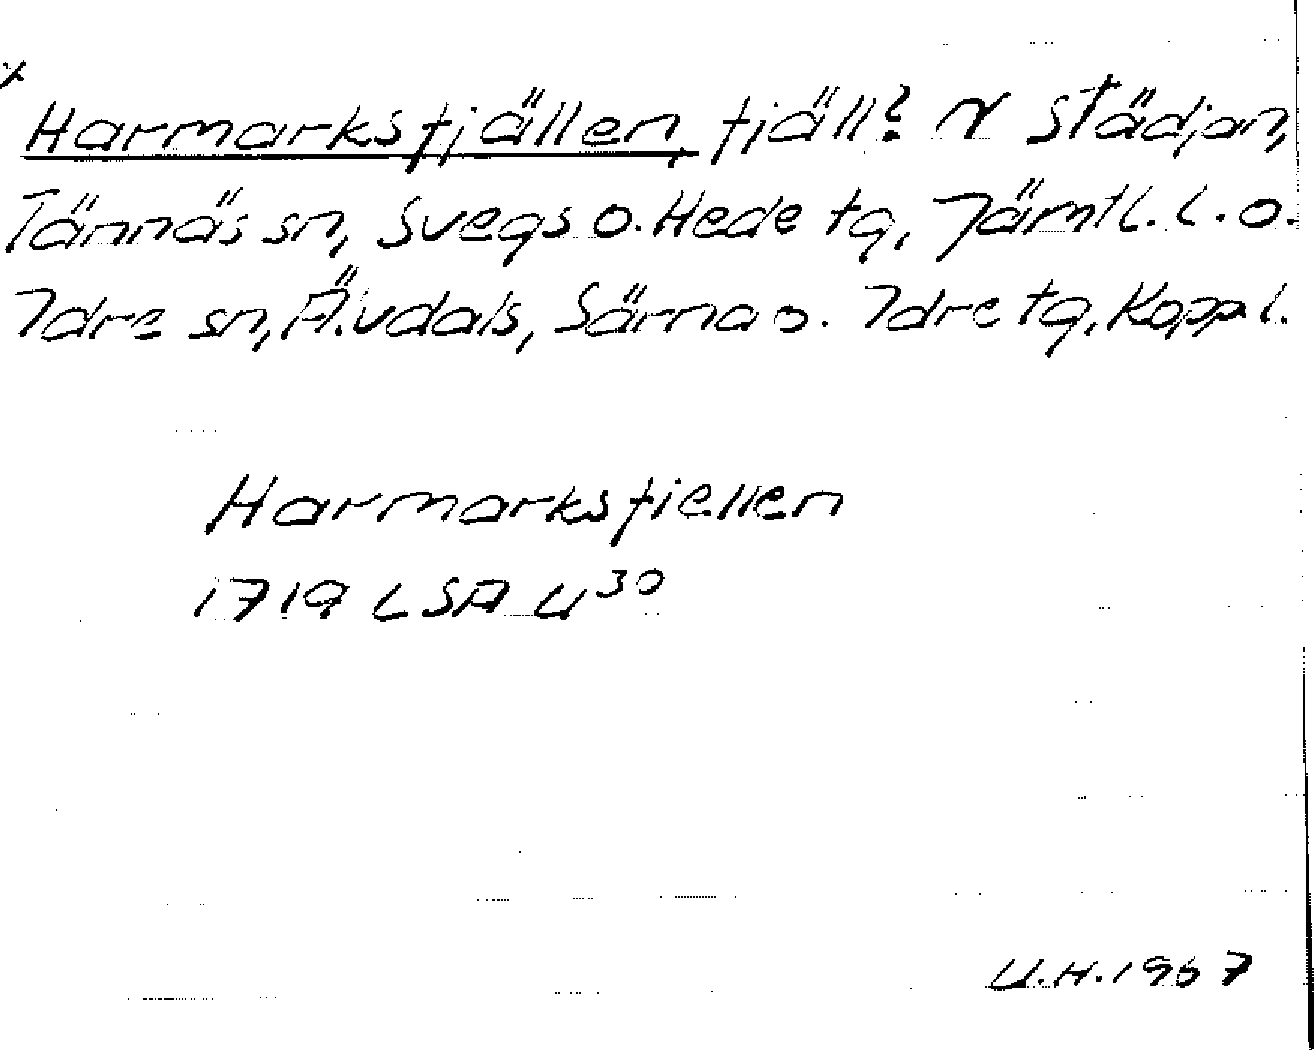 x
Harmarksfjällen, fjäll? N Städjan,
Tännäs sn, Svegs o. Hede tg, Jämtl. l. o.
Idre sn, Älvdals, Särna o. Idre tg, Kopp.l.
Harmarksfiellen
1719 LSA U³⁰
U.H. 1967